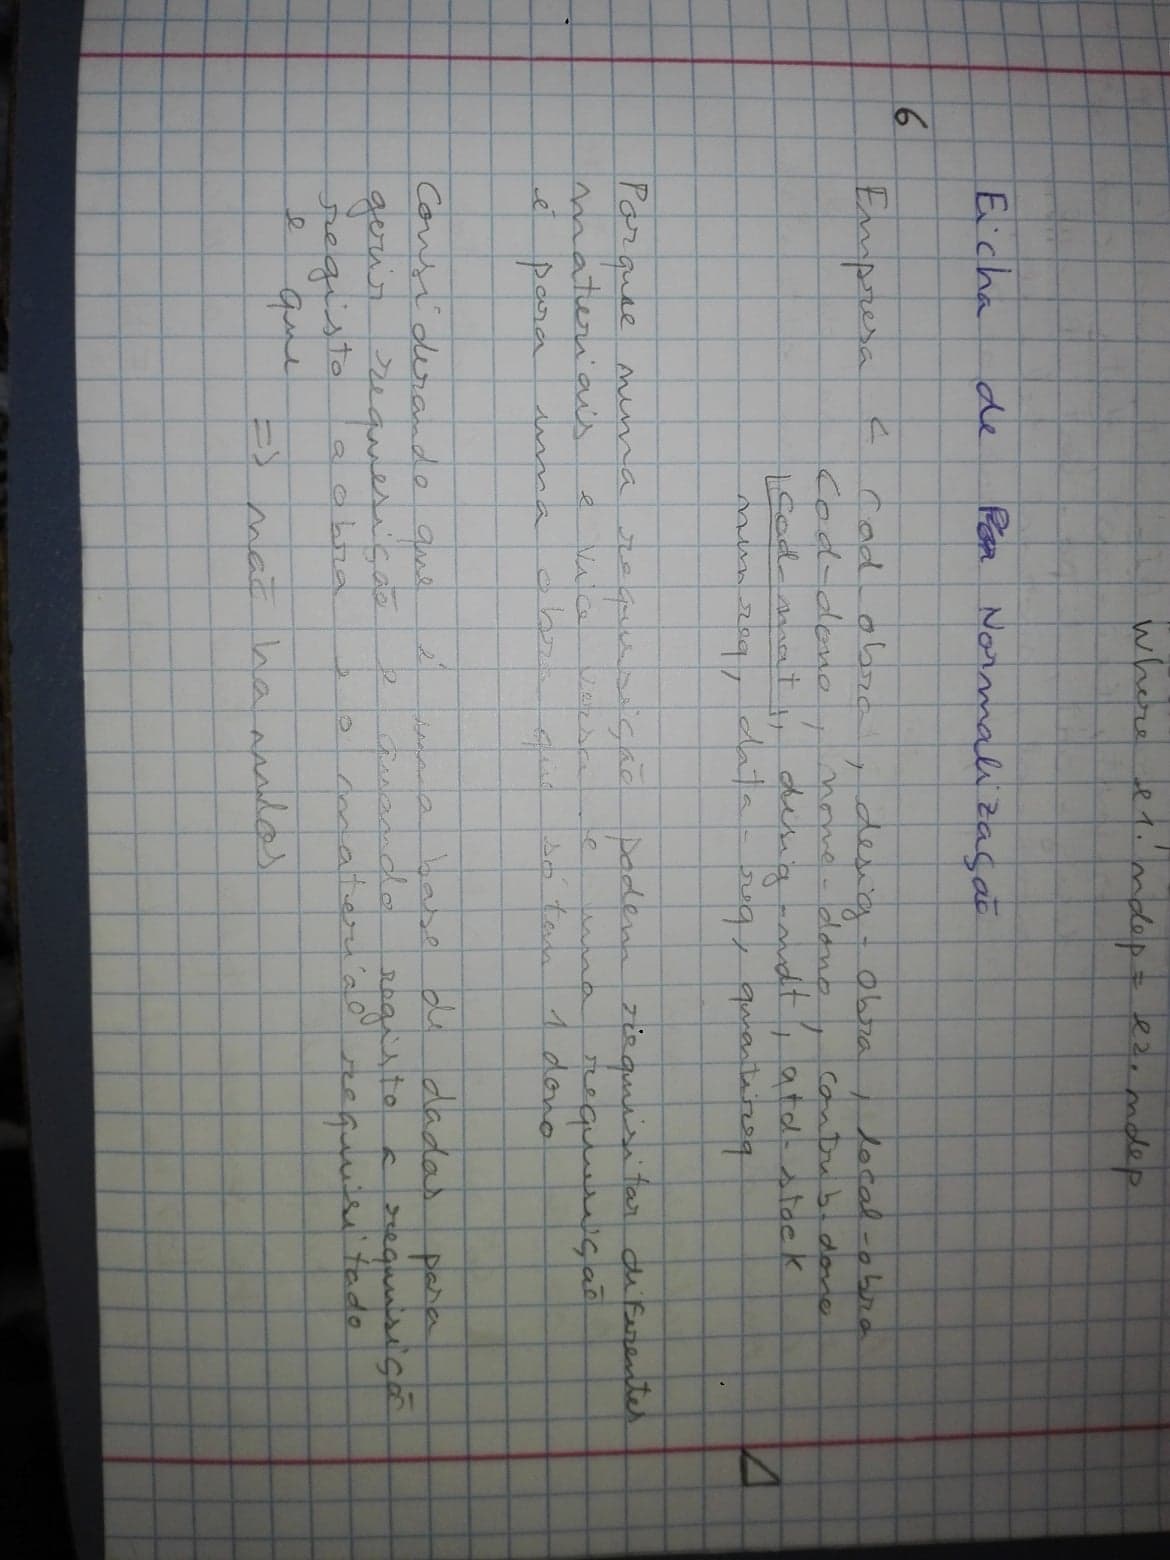 Where e1. mdep = e2. mdep
Ficha de Normalização
6
Empresa < cod_obra, desig-obra, local-obra
Cod-dono, nome-dono, contrib. dono
cod-mat, desig-mat, qtd-stock
num req, data-req, quantireq
Δ
Porque numa requesição podem riequisitar diferentes
materiais e vice versa e uma requesição
é para uma obra que só tem 1 dono
Considerando que é uma base de dados para
gerir requesição e quando registo a requisição
registo a obra e o material requisitado
e que
=> não ha nulos